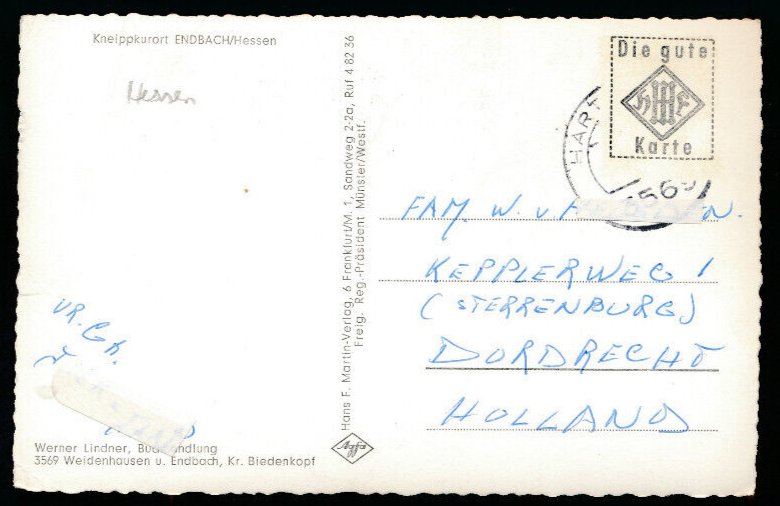 Kneippkurort ENDBACH/Hessen
Hessen
VR. Gr.
Werner Lindner, Buchhandlung
3569 Weidenhausen u. Endbach, Kr. Biedenkopf
Hans F. Martin-Verlag, 6 Frankfurt/M. 1, Sandweg 2-2a, Ruf 4 82 36
Freig. Reg.-Präsident Münster/Westf.
Agfa
Die gute
HMF
Karte
HAR
569
FAM. W. v.
KEPPLERWEG 1
(STERRENBURG)
DORDRECHT
HOLLAND